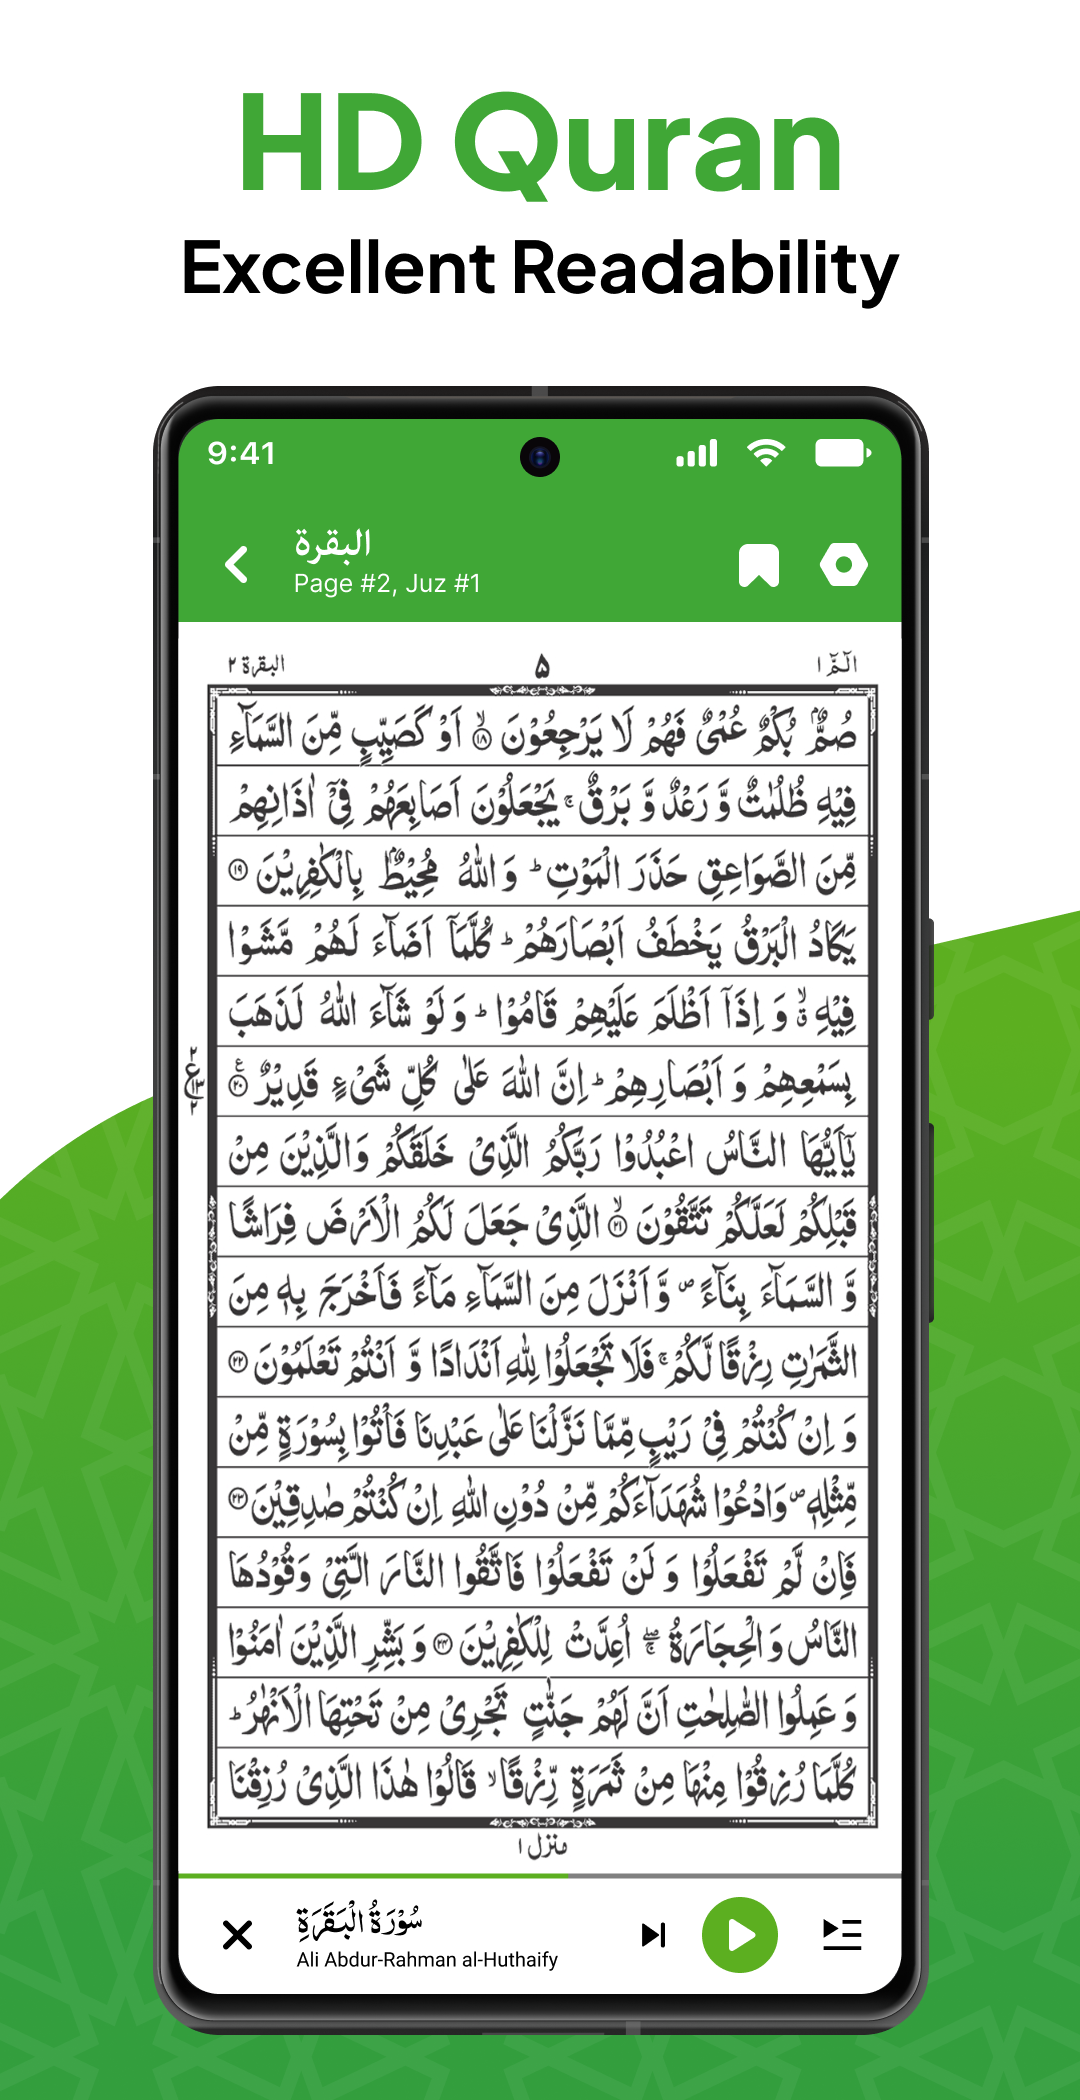 HD Quran
Excellent Readability
9:41
البقرة
Page #2, Juz #1
الٓمّٓ ١
۵
البقرة ٢
صُمٌّۢ بُكْمٌ عُمْیٌ فَهُمْ لَا یَرْجِعُوْنَ ۙ﴿۱۸﴾ اَوْ كَصَیِّبٍ مِّنَ السَّمَآءِ
فِیْهِ ظُلُمٰتٌ وَّ رَعْدٌ وَّ بَرْقٌ ۚ یَجْعَلُوْنَ اَصَابِعَهُمْ فِیْۤ اٰذَانِهِمْ
مِّنَ الصَّوَاعِقِ حَذَرَ الْمَوْتِ ؕ وَ اللّٰهُ مُحِیْطٌۢ بِالْكٰفِرِیْنَ ﴿۱۹﴾
یَكَادُ الْبَرْقُ یَخْطَفُ اَبْصَارَهُمْ ؕ كُلَّمَاۤ اَضَآءَ لَهُمْ مَّشَوْا
فِیْهِ ۙۗ وَ اِذَاۤ اَظْلَمَ عَلَیْهِمْ قَامُوْا ؕ وَ لَوْ شَآءَ اللّٰهُ لَذَهَبَ
بِسَمْعِهِمْ وَ اَبْصَارِهِمْ ؕ اِنَّ اللّٰهَ عَلٰی كُلِّ شَیْءٍ قَدِیْرٌ ﴿۲۰﴾ ع
٢
ع
١٣
٢
یٰۤاَیُّهَا النَّاسُ اعْبُدُوْا رَبَّكُمُ الَّذِیْ خَلَقَكُمْ وَ الَّذِیْنَ مِنْ
قَبْلِكُمْ لَعَلَّكُمْ تَتَّقُوْنَ ۙ﴿۲۱﴾ الَّذِیْ جَعَلَ لَكُمُ الْاَرْضَ فِرَاشًا
وَّ السَّمَآءَ بِنَآءً ۪ وَّ اَنْزَلَ مِنَ السَّمَآءِ مَآءً فَاَخْرَجَ بِهٖ مِنَ
الثَّمَرٰتِ رِزْقًا لَّكُمْ ۚ فَلَا تَجْعَلُوْا لِلّٰهِ اَنْدَادًا وَّ اَنْتُمْ تَعْلَمُوْنَ ﴿۲۲﴾
وَ اِنْ كُنْتُمْ فِیْ رَیْبٍ مِّمَّا نَزَّلْنَا عَلٰی عَبْدِنَا فَاْتُوْا بِسُوْرَةٍ مِّنْ
مِّثْلِهٖ ۪ وَ ادْعُوْا شُهَدَآءَكُمْ مِّنْ دُوْنِ اللّٰهِ اِنْ كُنْتُمْ صٰدِقِیْنَ ﴿۲۳﴾
فَاِنْ لَّمْ تَفْعَلُوْا وَ لَنْ تَفْعَلُوْا فَاتَّقُوا النَّارَ الَّتِیْ وَ قُوْدُهَا
النَّاسُ وَ الْحِجَارَةُ ۖۚ اُعِدَّتْ لِلْكٰفِرِیْنَ ﴿۲۴﴾ وَ بَشِّرِ الَّذِیْنَ اٰمَنُوْا
وَ عَمِلُوا الصّٰلِحٰتِ اَنَّ لَهُمْ جَنّٰتٍ تَجْرِیْ مِنْ تَحْتِهَا الْاَنْهٰرُ ؕ
كُلَّمَا رُزِقُوْا مِنْهَا مِنْ ثَمَرَةٍ رِّزْقًا ۙ قَالُوْا هٰذَا الَّذِیْ رُزِقْنَا
منزل ١
سُوْرَةُ الْبَقَرَةِ
Ali Abdur-Rahman al-Huthaify